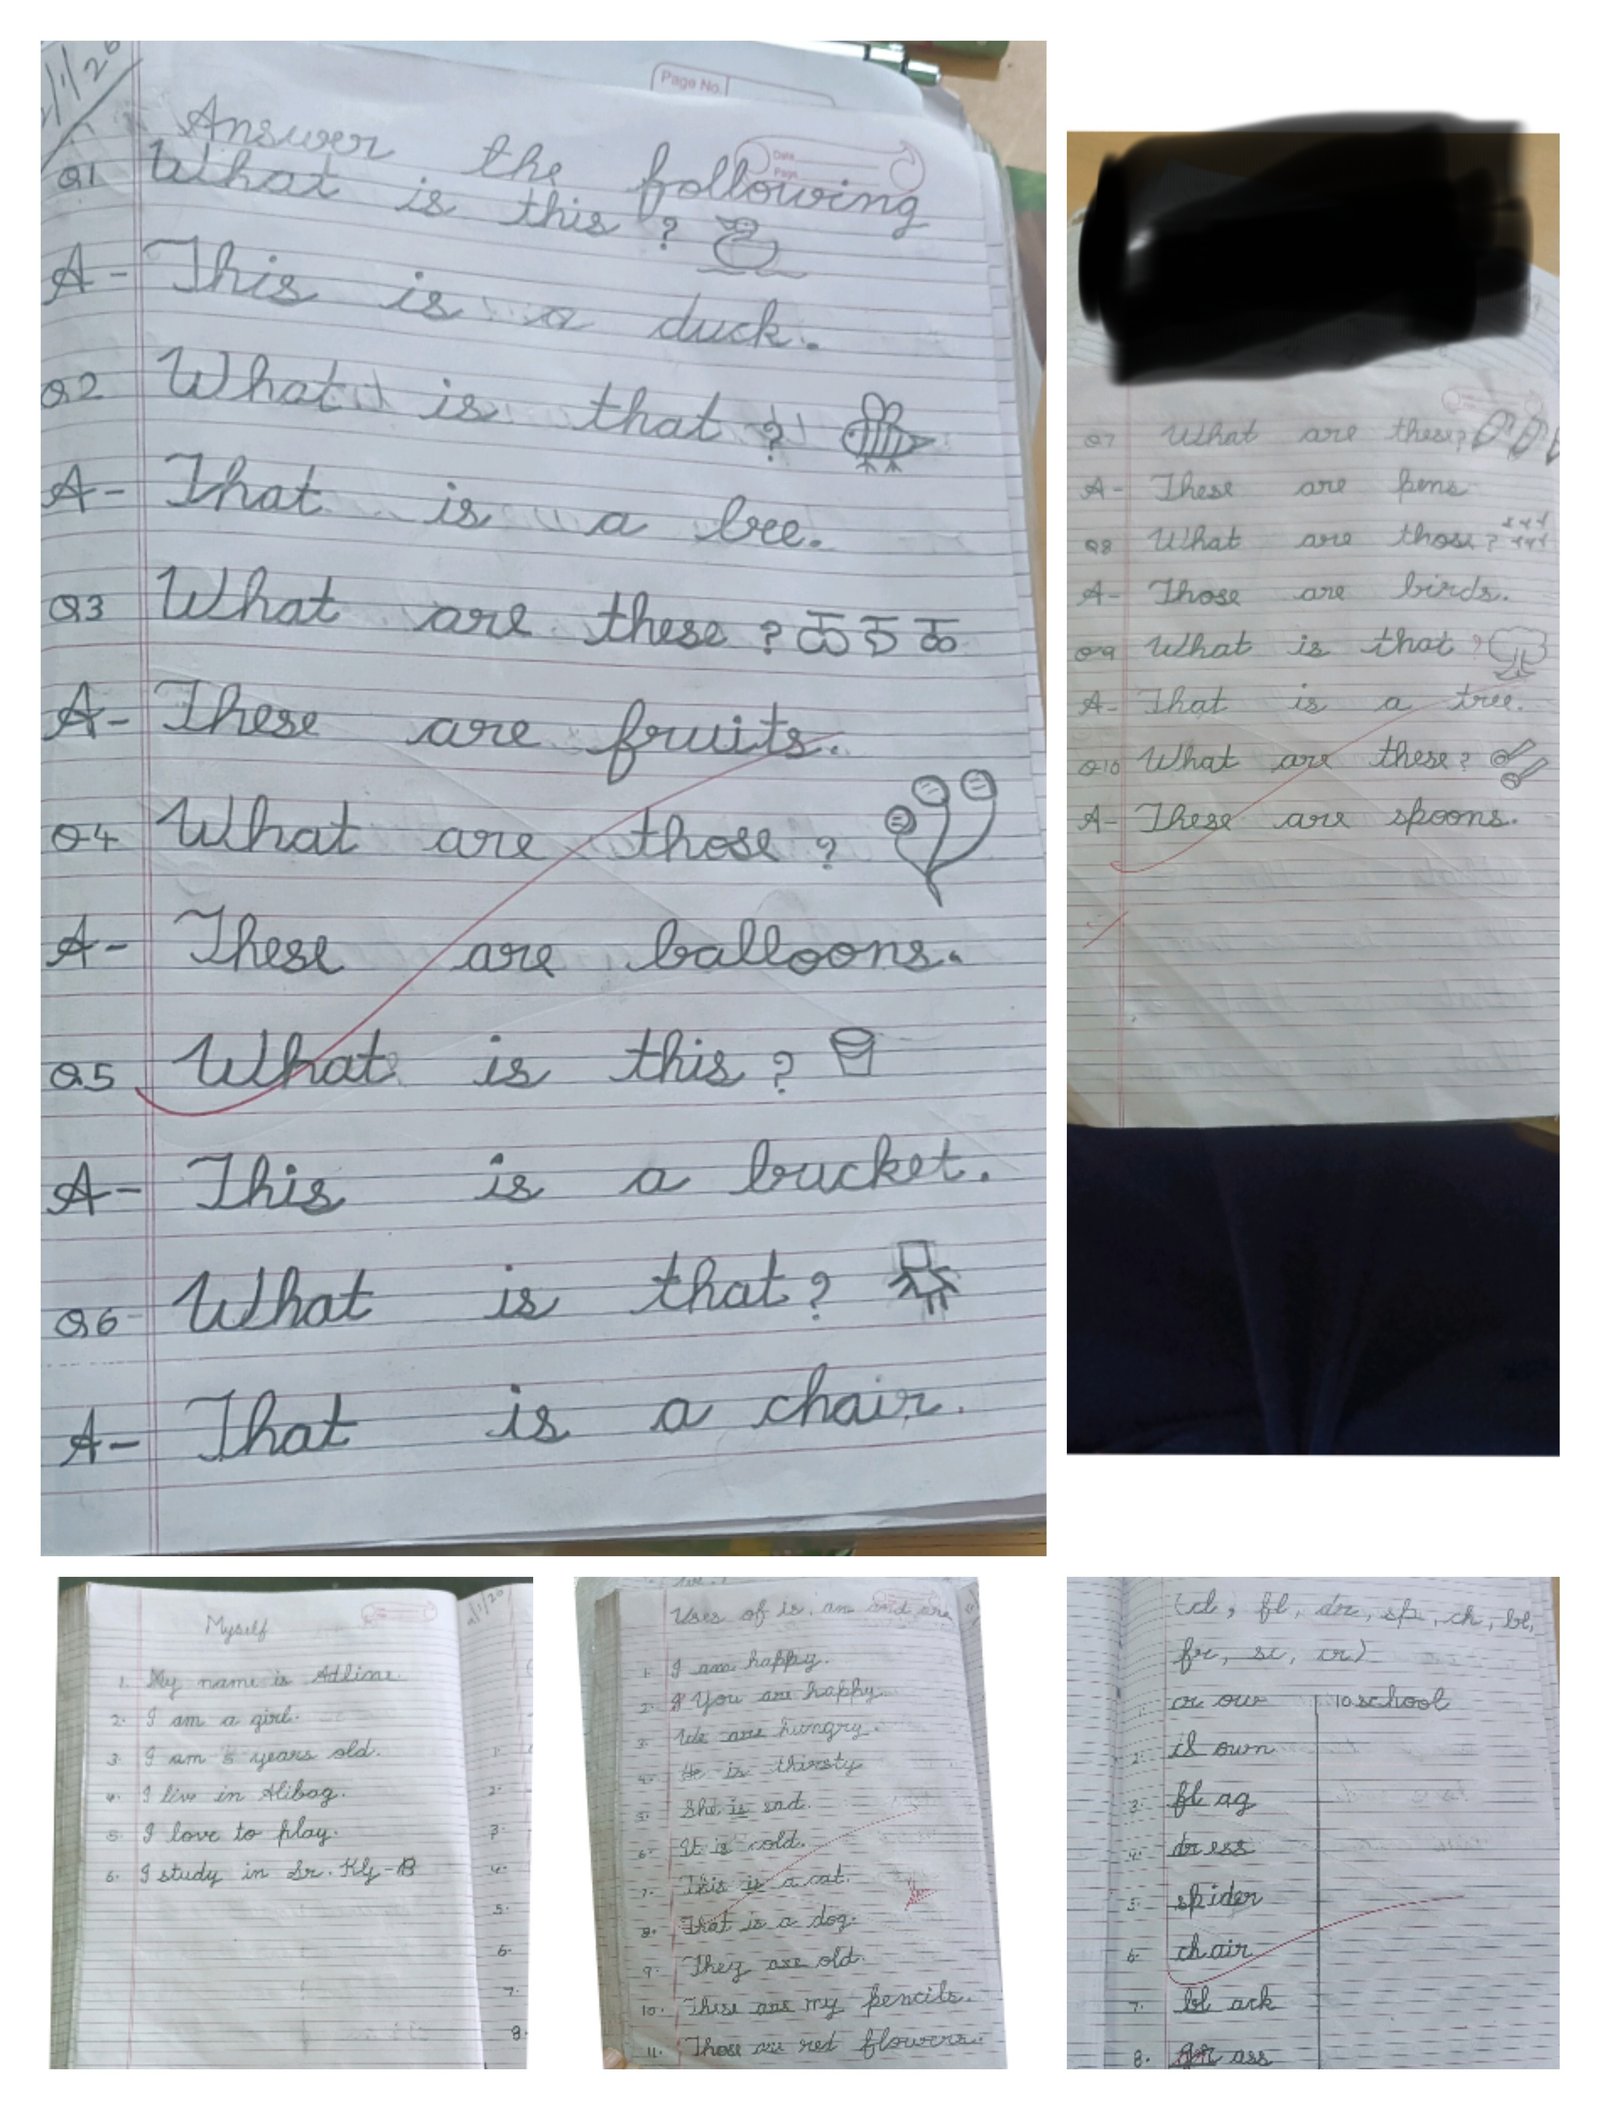 Page No.
Date
Page
Answer the following
Q1 What is this?
A- This is a duck.
Q2 What is that?
A- That is a bee.
Q3 What are these?
A- These are fruits.
Q4 What are those?
A- These are balloons.
Q5 What is this?
A- This is a bucket.
Q6 What is that?
A- That is a chair.
Q7 What are these?
A- These are pens
Q8 What are those?
A- Those are birds.
Q9 What is that?
A- That is a tree.
Q10 What are these?
A- These are spoons.
Myself
1. My name is Adline.
2. I am a girl.
3. I am 5 years old.
4. I live in Alibag.
5. I love to play.
6. I study in Sr. KG-B
1.
2.
3.
4.
5.
6.
7.
8.
Uses of is, am and are
1. I am happy.
2. You are happy.
3. We are hungry.
4. He is thirsty
5. She is sad.
6. It is cold.
7. This is a cat.
8. That is a dog.
9. They are old.
10. These are my pencils.
11. Those are red flowers.
(cl, fl, dr, sp, ch, bl,
fr, sc, cr)
cr ow 10. school
2. cl own
3. fl ag
4. dr ess
5. spider
6. chair
7. bl ack
8. ass